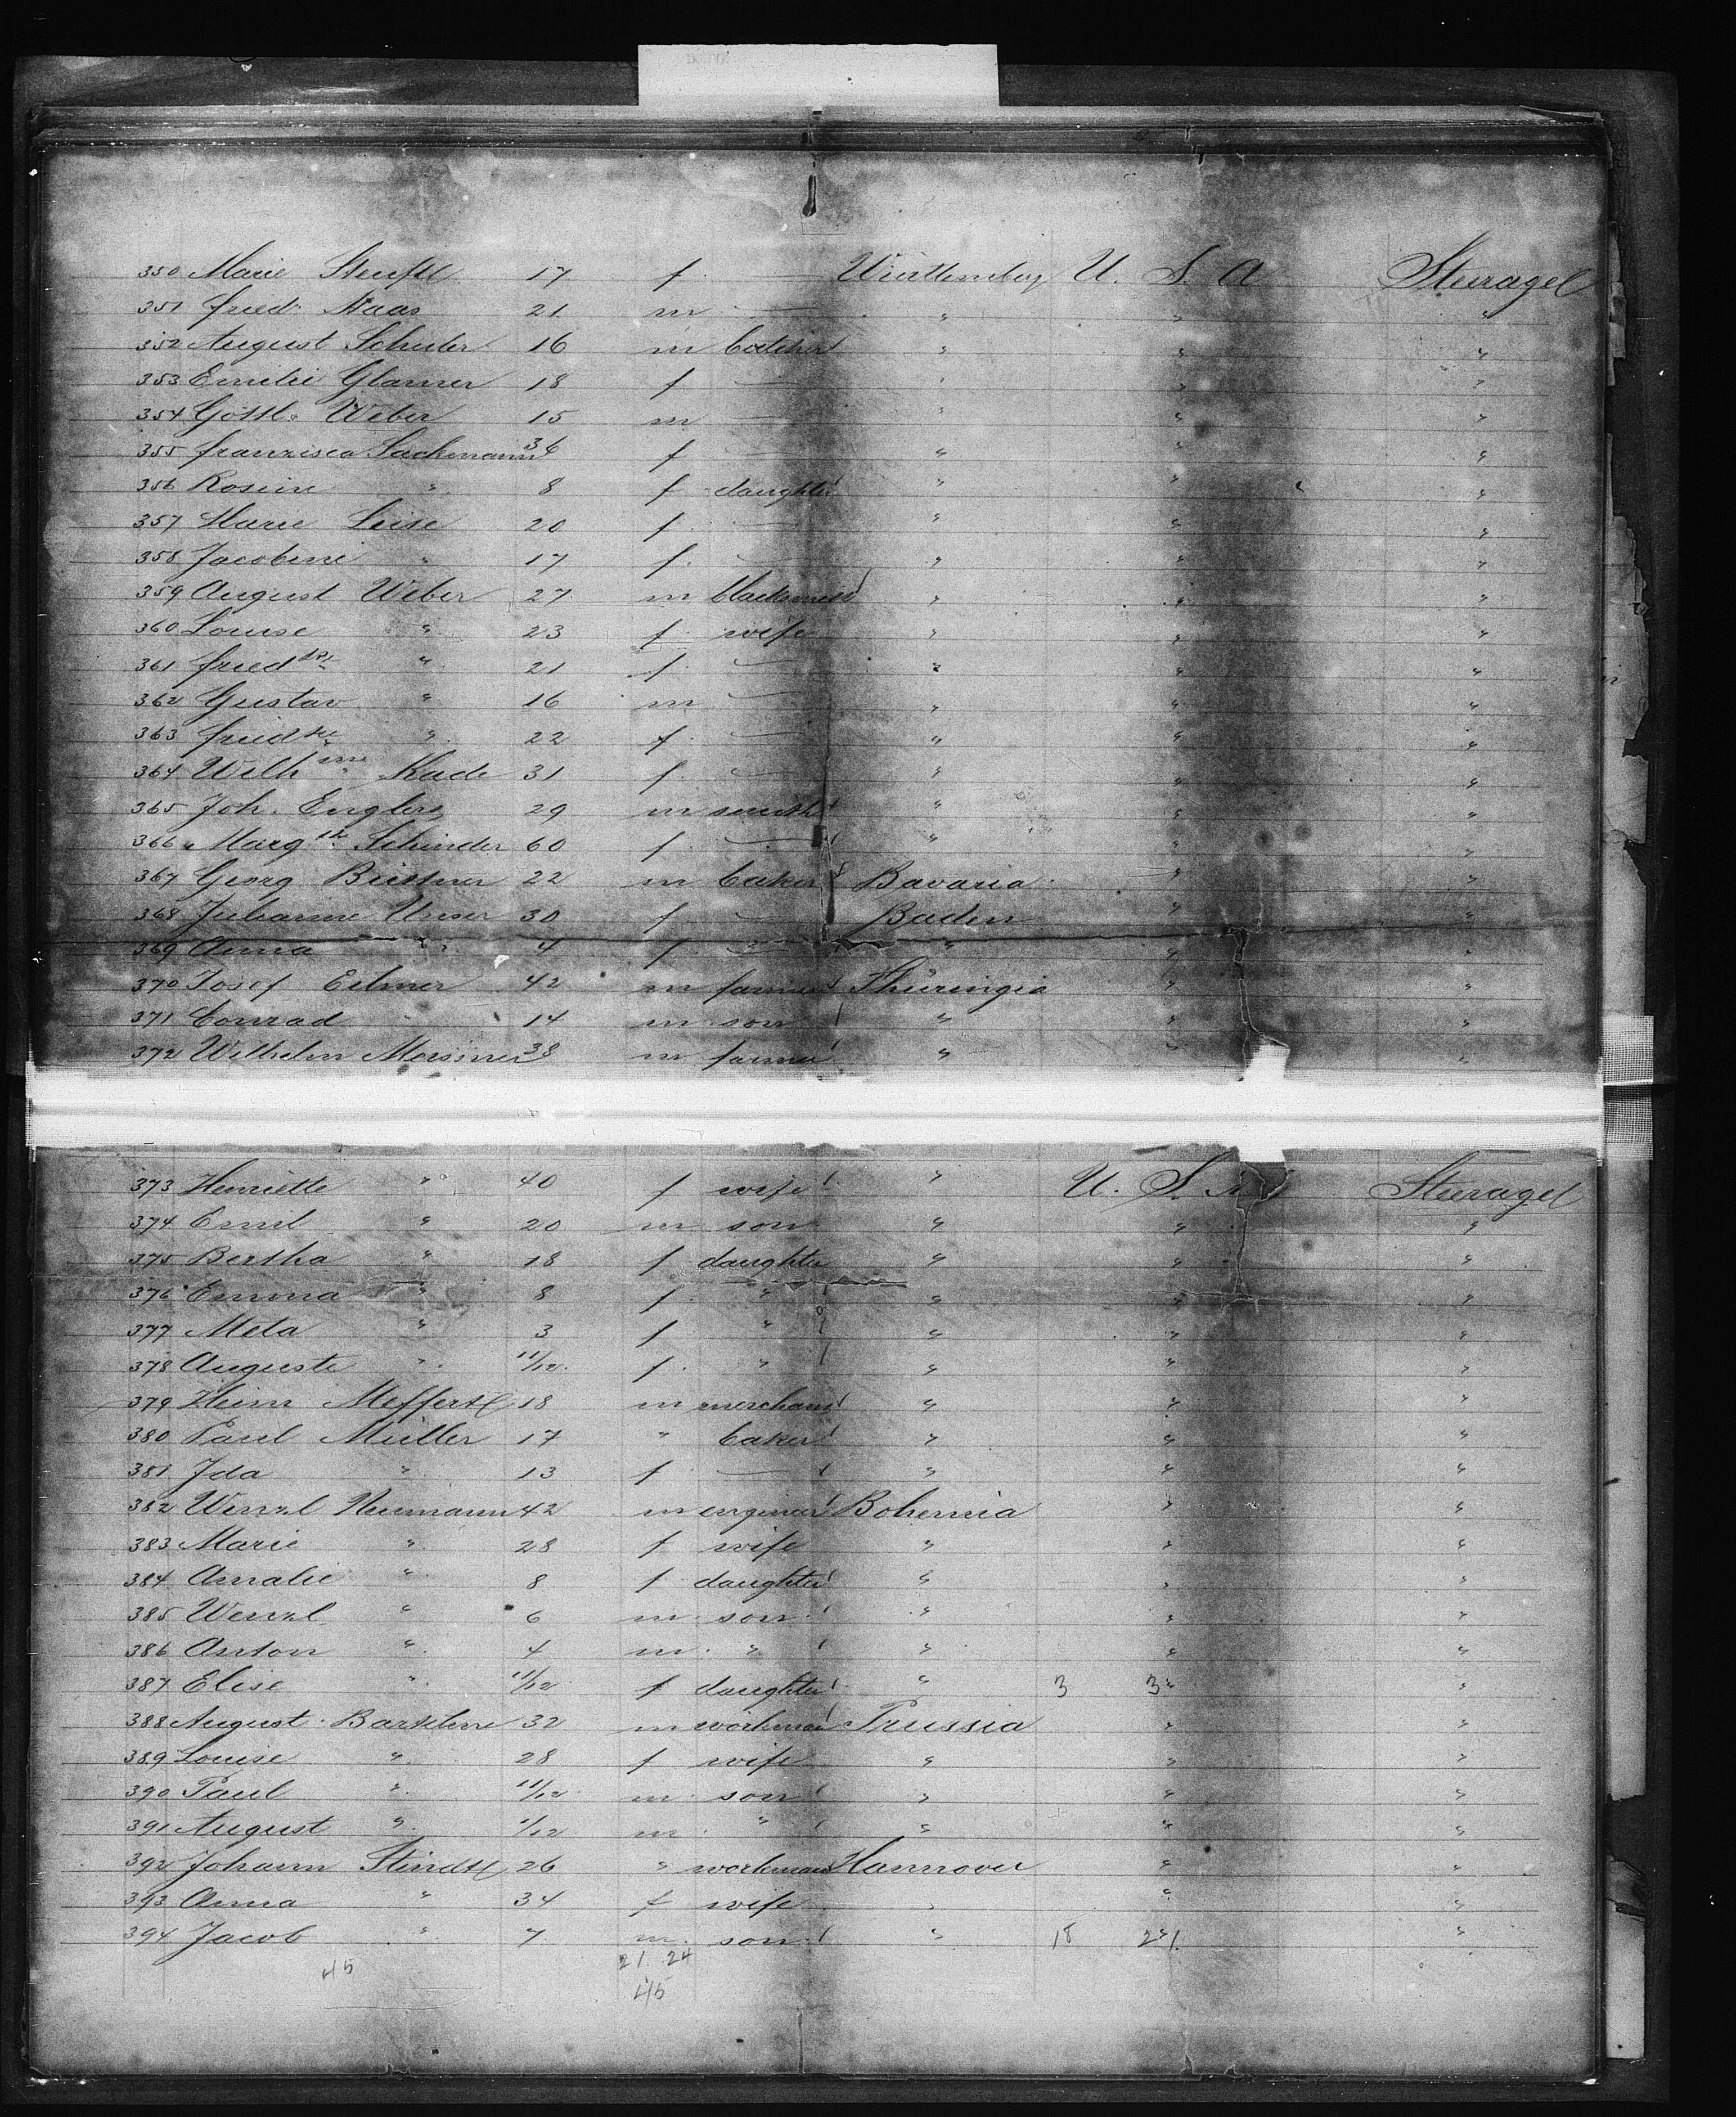 350 Marie 17 f. — Württemberg U. S. A Steerage
351 Fried. Haas 21 m — " " "
352 August Schuler 16 m butcher " " "
353 Emilie Glamer 18 f — " " "
354 Gottl. Weber 15 m — " " "
355 Franzisca Lachmann 36 f — " " "
356 Rosine " 8 f daughter " " "
357 Marie Leise 20 f. — " " "
358 Jacobine " 17 f. — " " "
359 August Weber 27 m blacksmith " " "
360 Louise " 23 f. wife " " "
361 Fried " 21 f. — " " "
362 Gustav " 16 m — " " "
363 Fried " 22 f. — " " "
364 Wilhme Kade 31 f. — " " "
365 Joh. Englert 29 m smith " " "
366 Margth Schinder 60 f. — " " "
367 Georg Büttner 22 m baker Bavaria " "
368 Julianne Unser 30 f — Baden " "
369 Anna " 4 f — " " "
370 Josef Eilmer 42 m farmer Thüringia " "
371 Conrad " 14 m son " " "
372 Wilhelm Meissner 38 m farmer " " "
373 Henriette " 40 f wife " U. S. A Steerage
374 Emil " 20 m son " " "
375 Bertha " 18 f daughter " " "
376 Emma " 8 f. " " " "
377 Meta " 3 f " " " "
378 Auguste " 11/12 f. " " " "
379 Heinr Meffert 18 m merchant " " "
380 Paul Müller 17 " baker " " "
381 Ida " 13 f — " " "
382 Wenzl Neumann 42 m engineer Bohemia " "
383 Marie " 28 f wife " " "
384 Amalie " 8 f daughter " " "
385 Wenzl " 6 m son " " "
386 Anton " 4 m " " " "
387 Elise " 11/12 f daughter " 3 3 " "
388 August 32 m workman Prussia " "
389 Louise " 28 f wife " " "
390 Paul " 11/12 m son " " "
391 August " 1/12 m " " " "
392 Johann Stindt 26 " workman Hannover " "
393 Anna " 34 f wife " " "
394 Jacob " 7 m. son " 18 21 "
45 21. 24
45